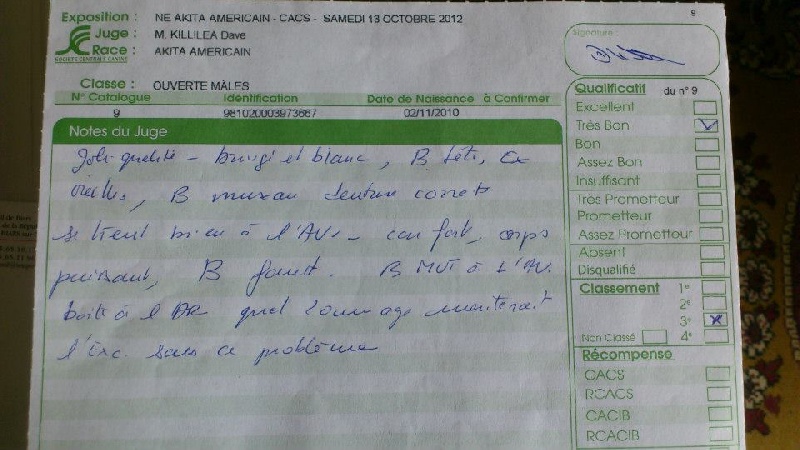 Exposition : NE AKITA AMERICAIN - CACS - SAMEDI 13 OCTOBRE 2012
9
Juge : M. KILLILEA Dave
Race : AKITA AMERICAIN
SOCIETE CENTRALE CANINE
Signature :
Classe : OUVERTE MÂLES
N° Catalogue Identification Date de Naissance à Confirmer
9 981020003973667 02/11/2010
Notes du Juge
Jolie qualité - bringé et blanc, B tête,
oreilles, B museau denture correcte
se tient bien à l'AV - cou fort, corps
puissant, B fouet. B MVT à l'AV.
boite à l'AR quel dommage mériterait
l'Exc. sans ce problème
Qualificatif du n° 9
Excellent
Très Bon
Bon
Assez Bon
Insuffisant
Très Prometteur
Prometteur
Assez Prometteur
Absent
Disqualifié
Classement 1e
2e
3e
Non Classé 4e
Récompense
CACS
RCACS
CACIB
RCACIB